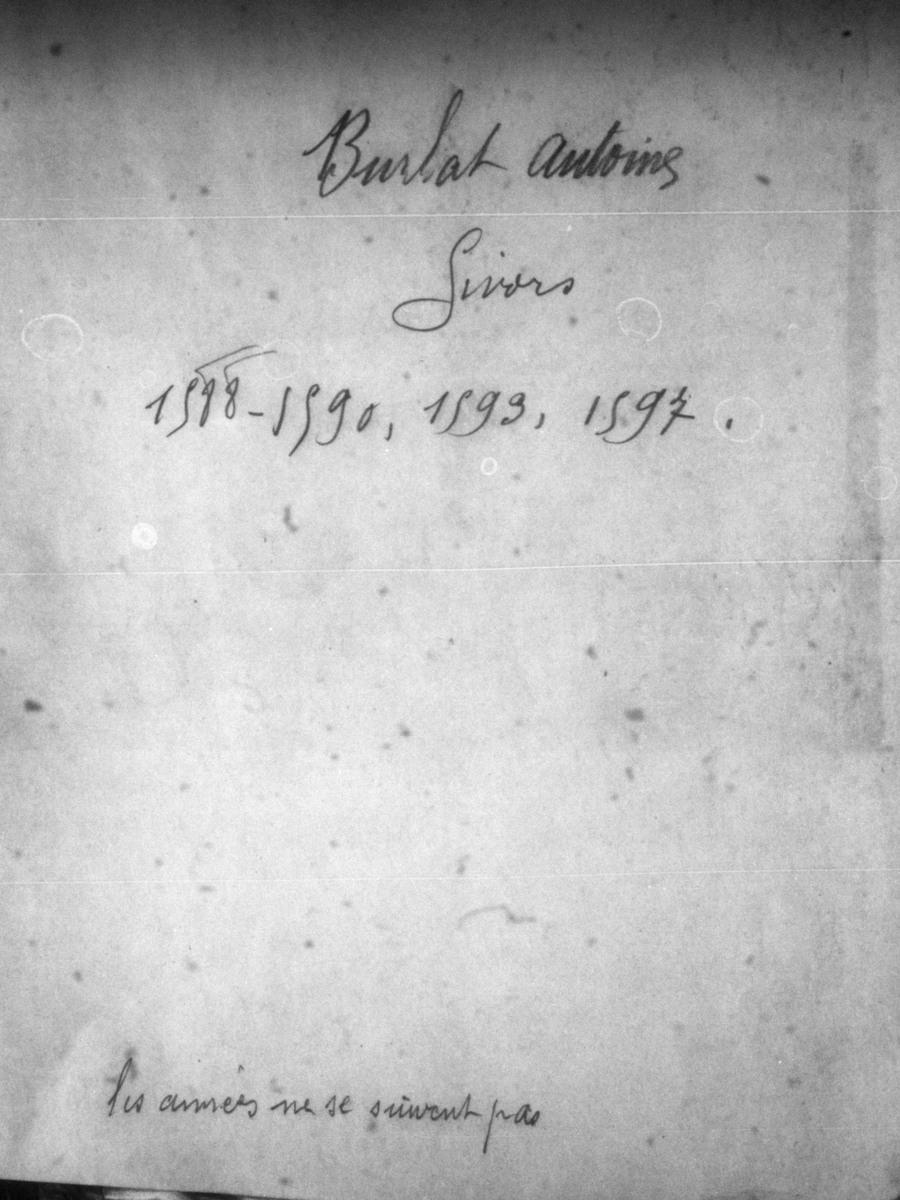 Burlat Antoine
Givors
1588-1590, 1593, 1597.
les années ne se suivent pas